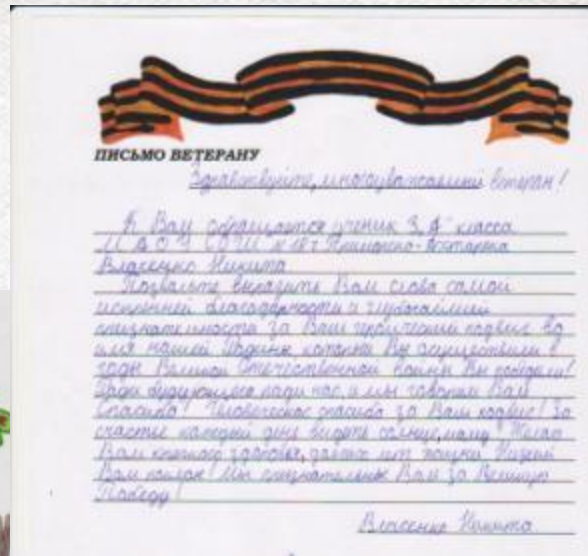 ПИСЬМО ВЕТЕРАНУ
Здравствуйте, многоуважаемый ветеран!
К Вам обращается ученик 3 "А" класса
МАОУ СОШ № 18 г. Приморско-Ахтарска
Власенко Никита
Позвольте выразить Вам слова самой
искренней благодарности и глубочайшей
признательности за Ваш героический подвиг во
имя нашей Родины, который Вы осуществили в
годы Великой Отечественной войны. Вы победили!
Ради будующего, ради нас, и мы говорим Вам
Спасибо! Человеческое спасибо за Ваш подвиг! За
счастье каждый день видеть солнце, маму! Желаю
Вам крепкого здоровья, долгих лет жизни. Низкий
Вам поклон! Мы признательны Вам за Великую
Победу!
Власенко Никита